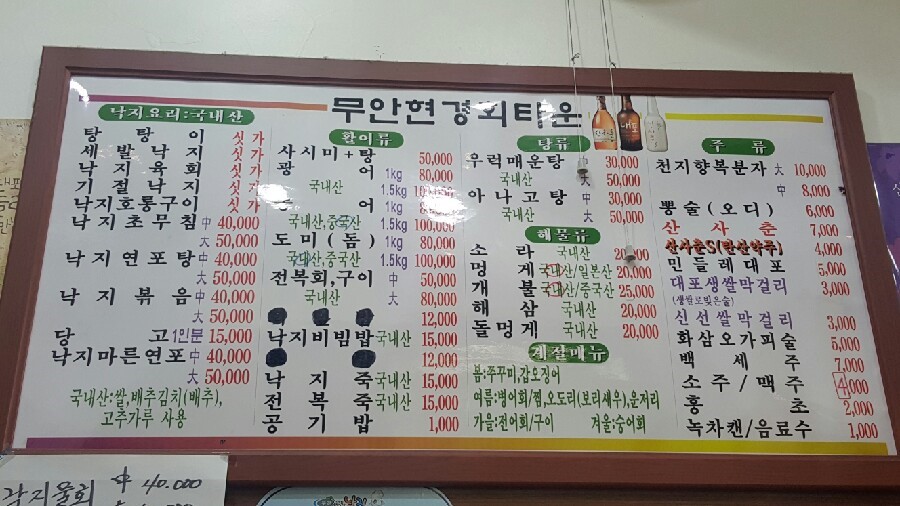 무안현경회타운
낙지요리:국내산
탕탕이 싯가
세발낙지 싯가
낙지육회 싯가
기절낙지 싯가
낙지호롱구이 싯가
낙지초무침 中 40,000
大 50,000
낙지연포탕 中 40,000
大 50,000
낙지볶음 中 40,000
大 50,000
당고 1인분 15,000
낙지마른연포 中 40,000
大 50,000
국내산:쌀,배추김치(배추),
고추가루 사용
활어류
사시미+탕 50,000
광어 1kg 80,000
국내산 1.5kg
어 1kg 80,000
국내산,중국산 1.5kg 100,000
도미(돔) 1kg 80,000
국내산,중국산 1.5kg 100,000
전복회,구이 中 50,000
국내산 大 80,000
12,000
낙지비빔밥 국내산 15,000
12,000
낙지죽 국내산 15,000
전복죽 국내산 15,000
공기밥 1,000
탕류
우럭매운탕 中 30,000
국내산 大 50,000
아나고탕 中 30,000
국내산 大 50,000
해물류
소라 국내산
멍게 국내산/일본산 20,000
개불 국내산/중국산 25,000
해삼 국내산 20,000
돌멍게 국내산 20,000
계절메뉴
봄:쭈꾸미,갑오징어
여름:병어회/찜,오도리(보리새우),운저리
가을:전어회/구이 겨울:숭어회
주류
천지향복분자 大 10,000
中 8,000
뽕술(오디) 6,000
산사춘 7,000
산사춘S(한산약주) 4,000
민들레대포 5,000
대포생쌀막걸리 3,000
(생쌀로빚은술)
신선쌀막걸리 3,000
화삼오가피술 5,000
백세주 7,000
소주/맥주 4,000
홍초 2,000
녹차캔/음료수 1,000
낙지물회 中 40.000